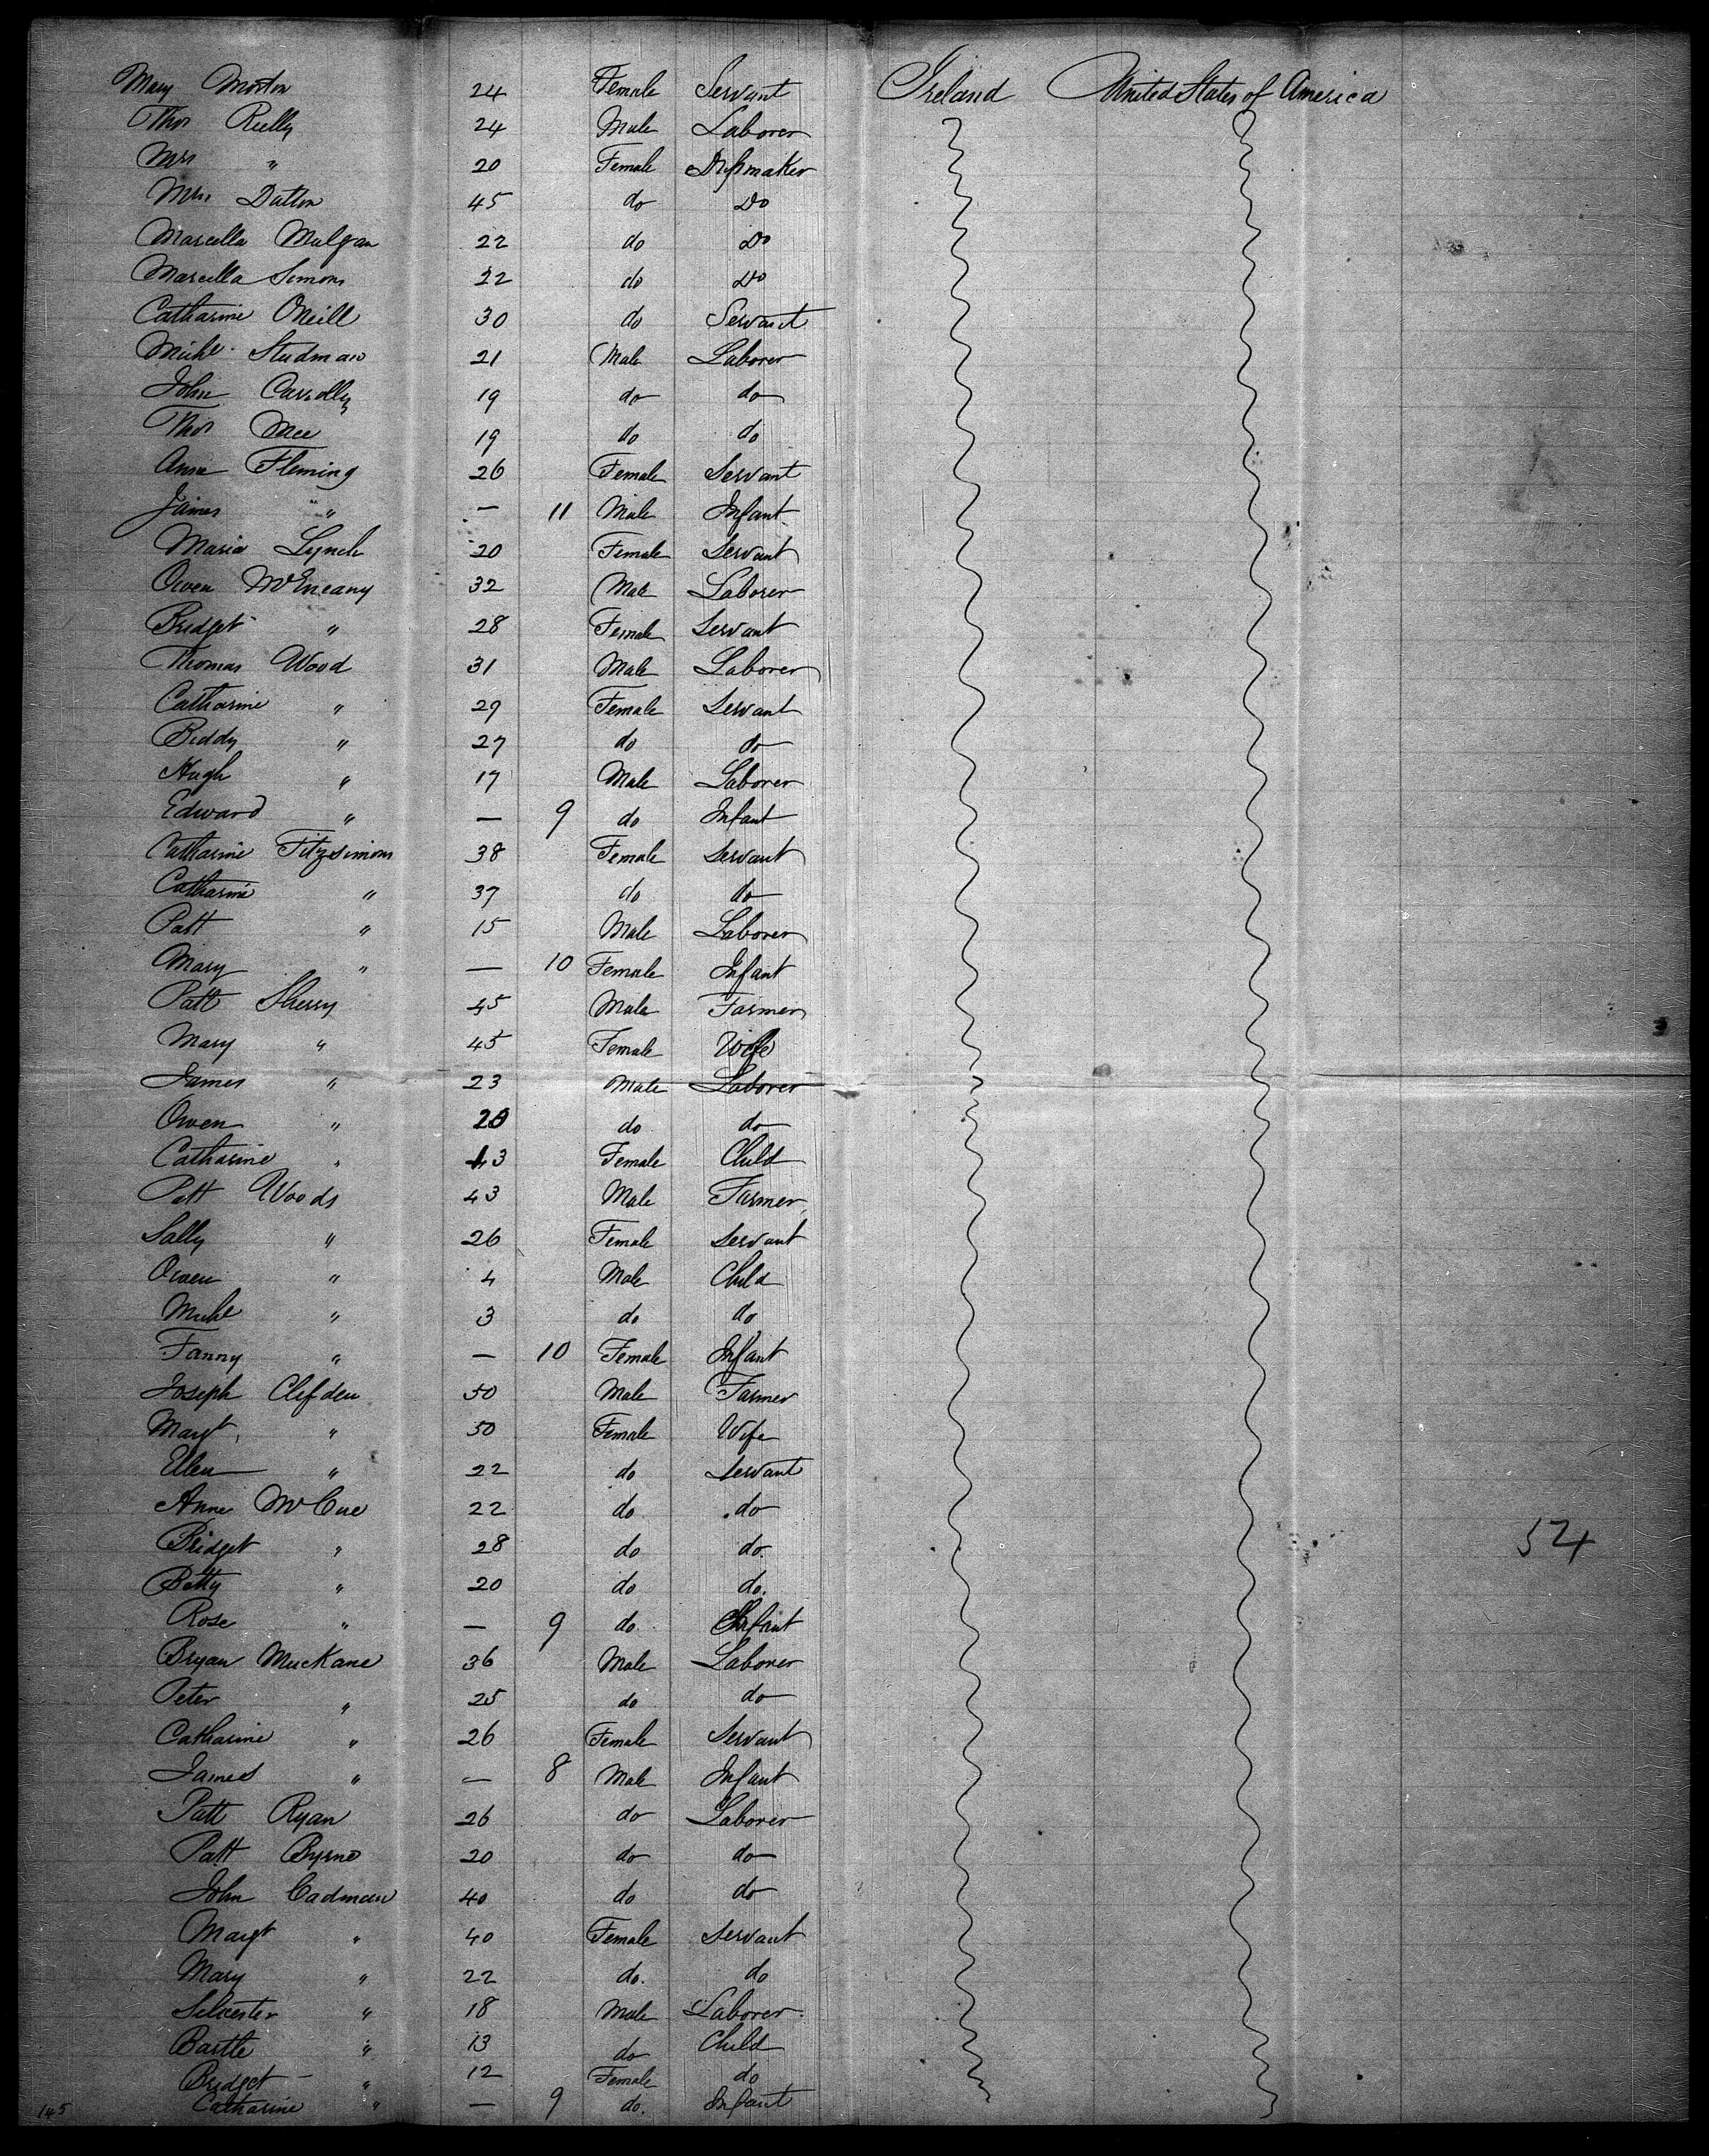 Mary Morton 24 Female Servant Ireland United States of America
Thos Reilly 24 Male Laborer
Mrs " 20 Female Dressmaker
Mrs Dalton 45 do Do
Marcella Mulgan 22 do Do
Marcella Simons 22 do Do
Catharine ONeill 30 do Servant
Michl Studman 21 Male Laborer
John Carrolly 19 do do
Thos Mee 19 do do
Anne Fleming 26 Female Servant
James " — 11 Male Infant
Maria Lynch 20 Female Servant
Owen McEneany 32 Male Laborer
Bridget " 28 Female Servant
Thomas Wood 31 Male Laborer
Catharine " 29 Female Servant
Biddy " 27 do do
Hugh " 17 Male Laborer
Edward " — 9 do Infant
Catharine Fitzsimons 38 Female Servant
Catharine " 37 do do
Patt " 15 Male Laborer
Mary " — 10 Female Infant
Patt Sherry 45 Male Farmer
Mary " 45 Female Wife
James " 23 Male Laborer
Owen " 20 do do
Catharine " 13 Female Child
Patt Woods 43 Male Farmer
Sally " 26 Female Servant
Owen " 4 Male Child
Michl " 3 do do
Fanny " — 10 Female Infant
Joseph Clifden 50 Male Farmer
Margt " 50 Female Wife
Ellen " 22 do Servant
Anne McCue 22 do do
Bridget " 28 do do
54
Betty " 20 do do
Rose " — 9 do Infant
Bryan MucKane 36 Male Laborer
Peter " 25 do do
Catharine " 26 Female Servant
James " — 8 Male Infant
Patt Ryan 26 do Laborer
Patt Byrne 20 do do
John Cadman 40 do do
Margt " 40 Female Servant
Mary " 22 do do
Silvester " 18 Male Laborer
Bartle " 13 do Child
Bridget " 12 Female do
Catharine " — 9 do Infant
145